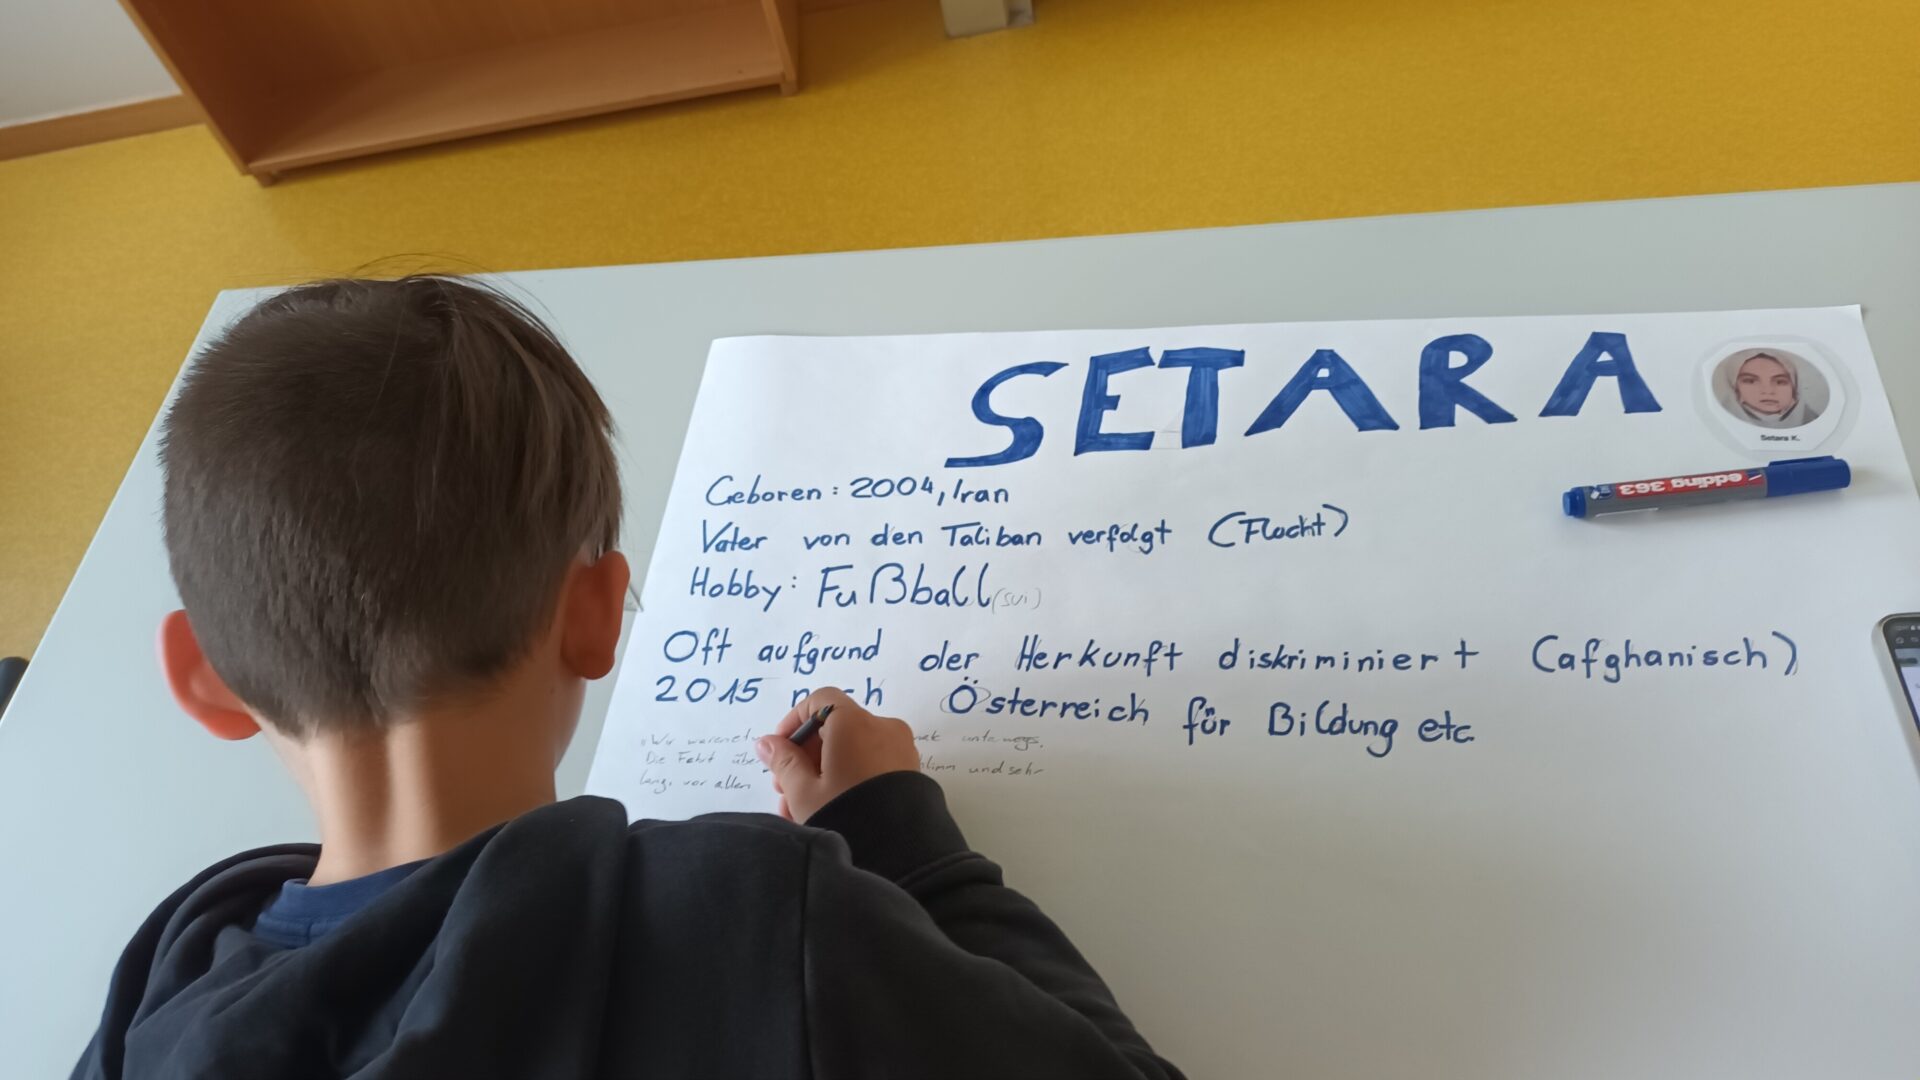 SETARA
Setara K.
edding 363
Geboren: 2004, Iran
Vater von den Taliban verfolgt (Flucht)
Hobby: Fußball (SUI)
Oft aufgrund der Herkunft diskriminiert (afghanisch)
2015 nach Österreich für Bildung etc
"Wir waren unterwegs.
Die Fahrt und sehr
lang, vor allem